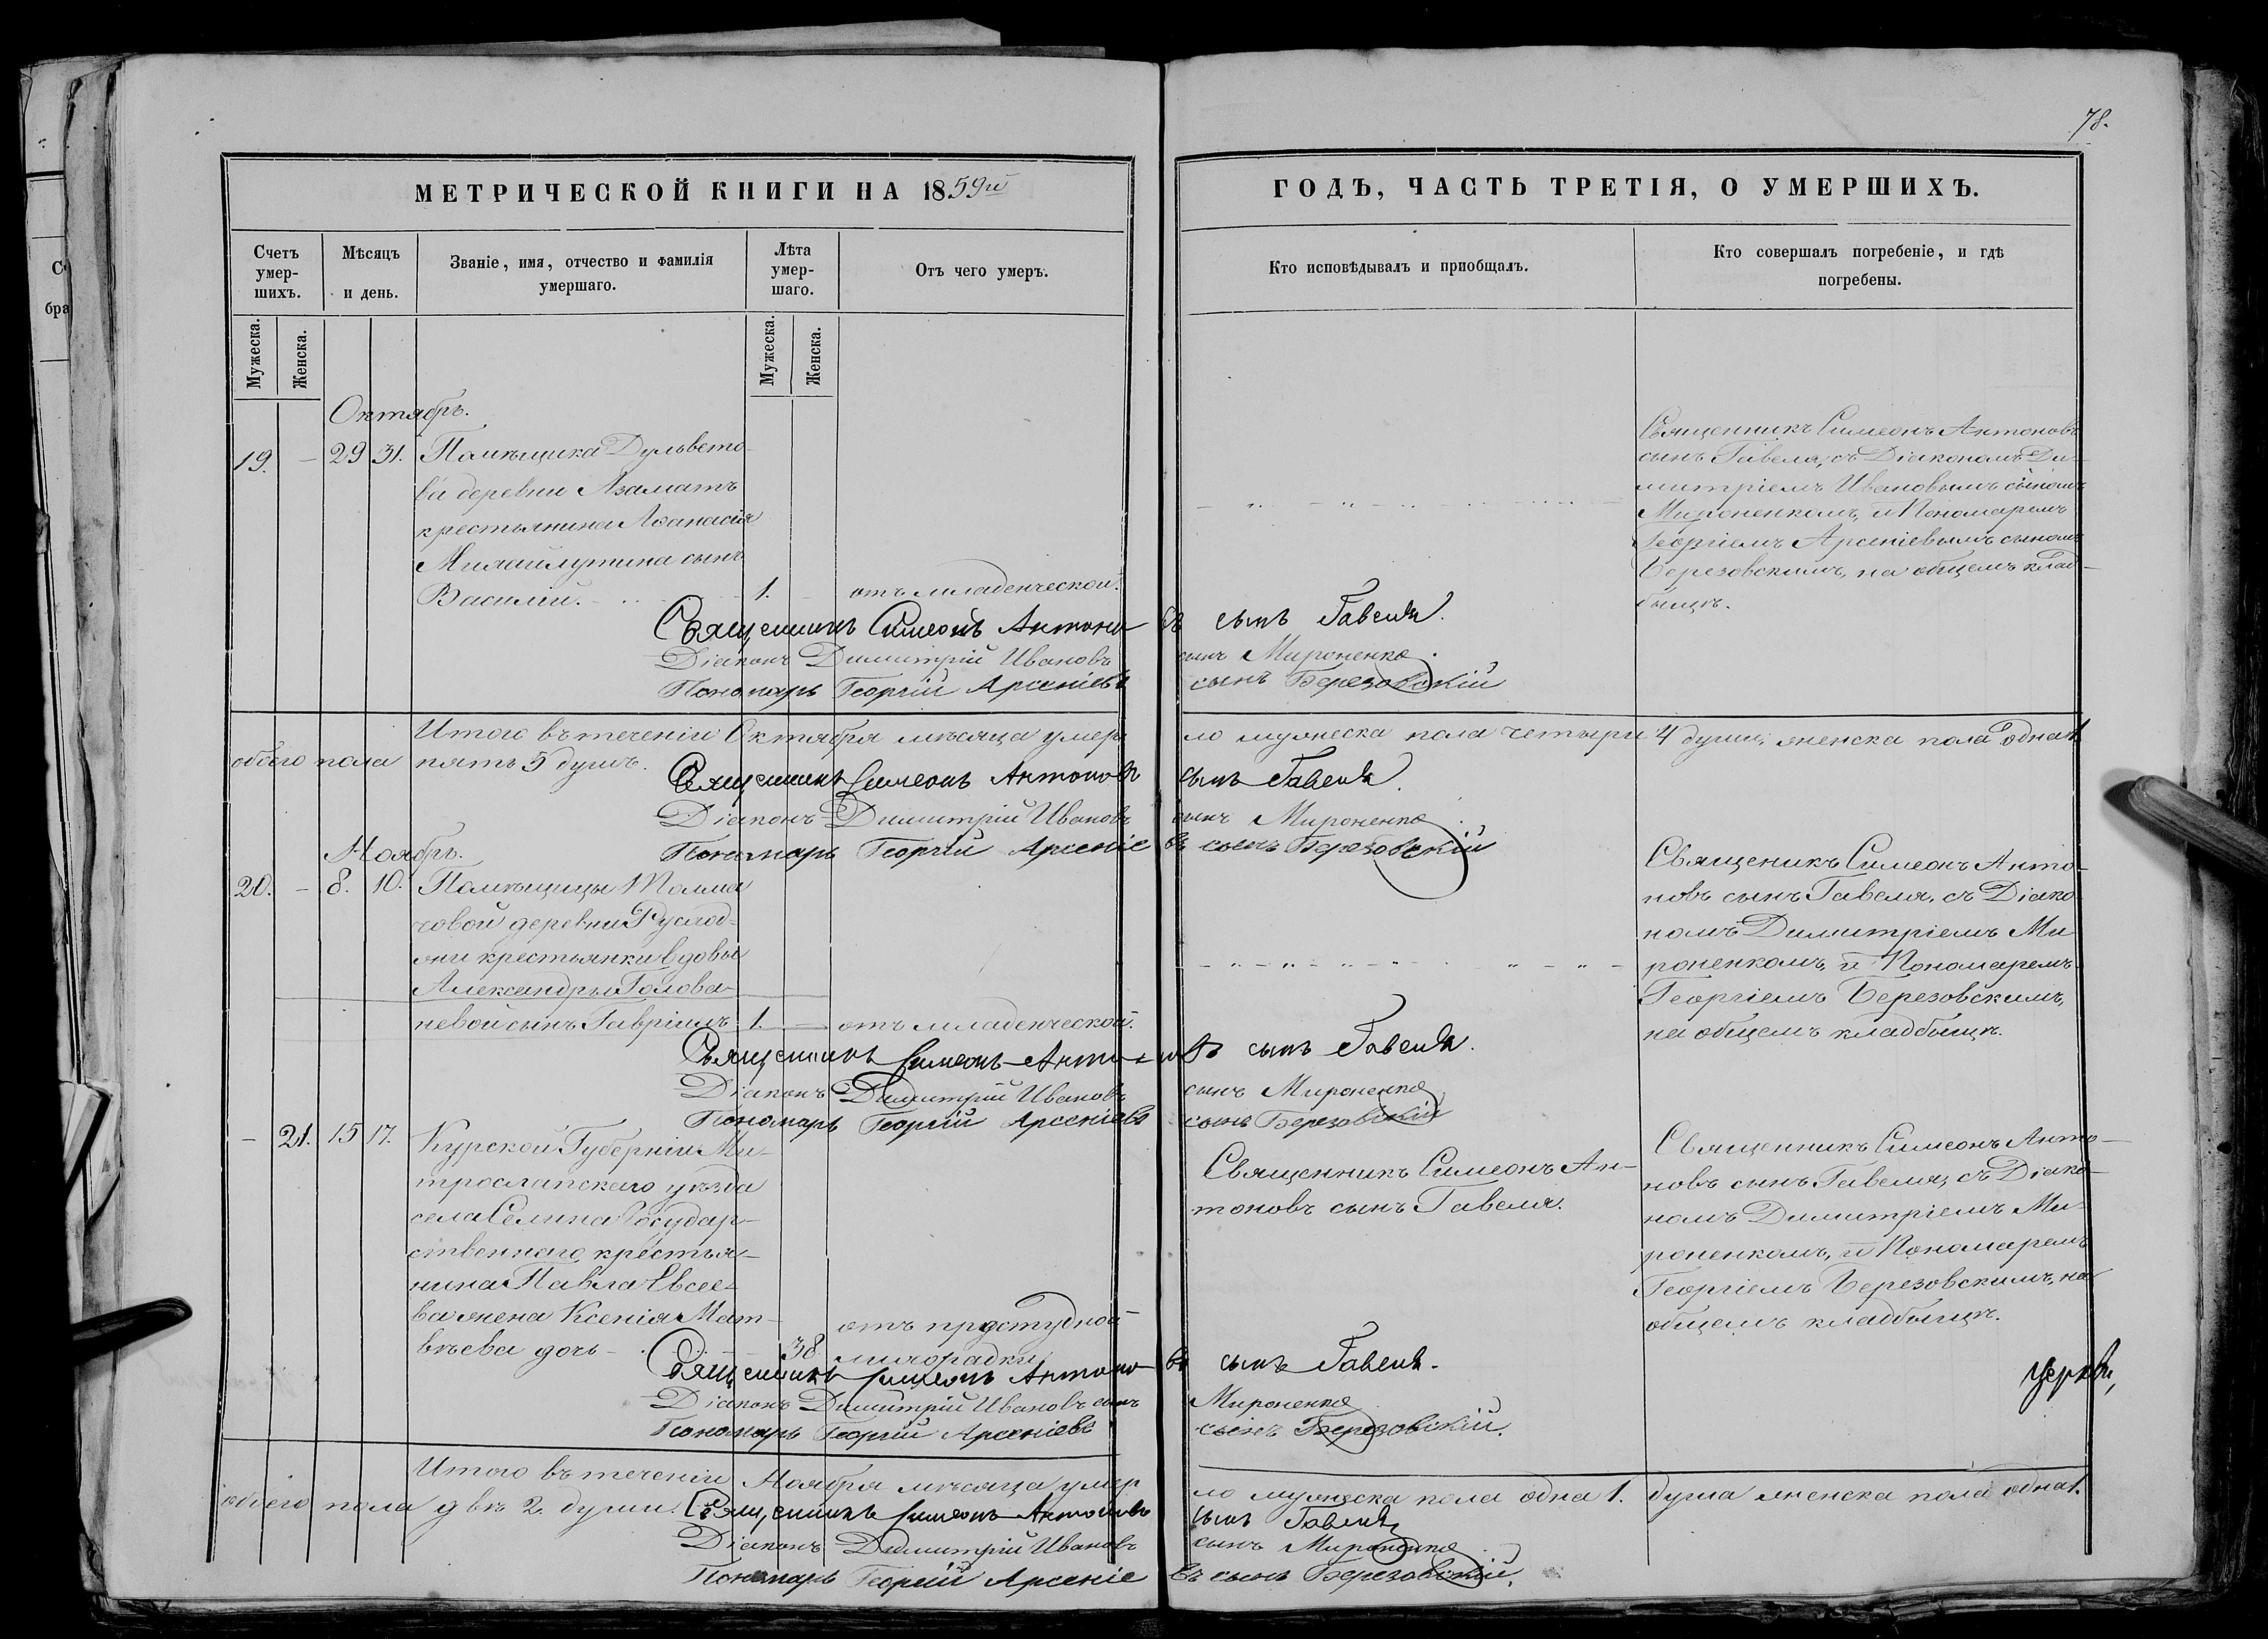 78.
МЕТРИЧЕСКОЙ КНИГИ НА 1859й
ГОДЪ, ЧАСТЬ ТРЕТІЯ, О УМЕРШИХЪ.
Счетъ умер-
шихъ.
Мѣсяцъ
и день.
Званіе, имя, отчество и фамилія
умершаго.
Лѣта
умер-
шаго.
Отъ чего умеръ.
Кто исповѣдывалъ и приобщалъ.
Кто совершалъ погребеніе, и гдѣ
погребены.
Мужеска.
Женска.
Мужеска.
Женска.
Октябрь.
19. – 29 31. Помѣщика Дульвето-
ва деревни Азаматъ
крестьянина Аѳанасія
сынъ
Василій. 1. – отъ младенческой.
Священникъ Симеонъ Антоновъ
сынъ Гавеля, съ Діакономъ Ди-
митріемъ Ивановымъ сыномъ
Мироненкомъ, и Пономаремъ
Георгіемъ Арсеніевымъ сыномъ
Березовскимъ, на общемъ клад-
бищѣ.
Священникъ Симеонъ Антоно въ сынъ Гавеля.
Діаконъ Димитрій Ивановъ сынъ Мироненко.
Пономарь Георгій Арсеніевъ сынъ Березовскій
Итого въ теченіи Октября мѣсяца умер ло мужеска пола четыри 4 души, женска пола одна 1.
обоего пола пять 5 душъ.
Священникъ Симеонъ Антоновъ сынъ Гавеля.
Діаконъ Димитрій Ивановъ сынъ Мироненко
Пономарь Георгій Арсеніе въ сынъ Березовскій
Ноябрь.
20. – 8. 10. Помѣщицы
деревни
крестьянки вдовы
Александры Голова-
невой сынъ Гавріилъ 1. – отъ младенческой.
Священикъ Симеонъ Анто-
новъ сынъ Гавеля, съ Діако-
номъ Димитріемъ Ми-
роненкомъ, и Пономаремъ
Георгіемъ Березовскимъ,
на общемъ кладбищѣ.
Священникъ Симеонъ Антоновъ сынъ Гавеля.
Діаконъ Димитрій Ивановъ сынъ Мироненко
Пономарь Георгій Арсеніевъ сынъ Березовскій
– 21. 15 17. Курской Губерніи
уѣзда
села Селина Государ-
ственнаго крестья-
нина Павла Евсее-
ва жена Ксенія Мат-
вѣева дочь – 38. отъ простудной
лихорадки
Священникъ Симеонъ Ан-
тоновъ сынъ Гавеля.
Священникъ Симеонъ Анто-
новъ сынъ Гавеля, съ Діако-
номъ Димитріемъ Ми-
роненкомъ, и Пономаремъ
Георгіемъ Березовскимъ, на
общемъ кладбищѣ.
Священникъ Симеонъ Антоно въ сынъ Гавеля.
Діаконъ Димитрій Ивановъ сынъ Мироненко
Пономарь Георгій Арсеніевъ сынъ Березовскій.
церкви,
Итого въ теченіи Ноября мѣсяца умер ло мужеска пола одна 1. душа женска пола одна 1.
обоего пола двѣ 2 души.
Священникъ Симеонъ Антоновъ сынъ Гавеля
Діаконъ Димитрій Ивановъ сынъ Мироненко
Пономарь Георгій Арсеніе въ сынъ Березовскій.